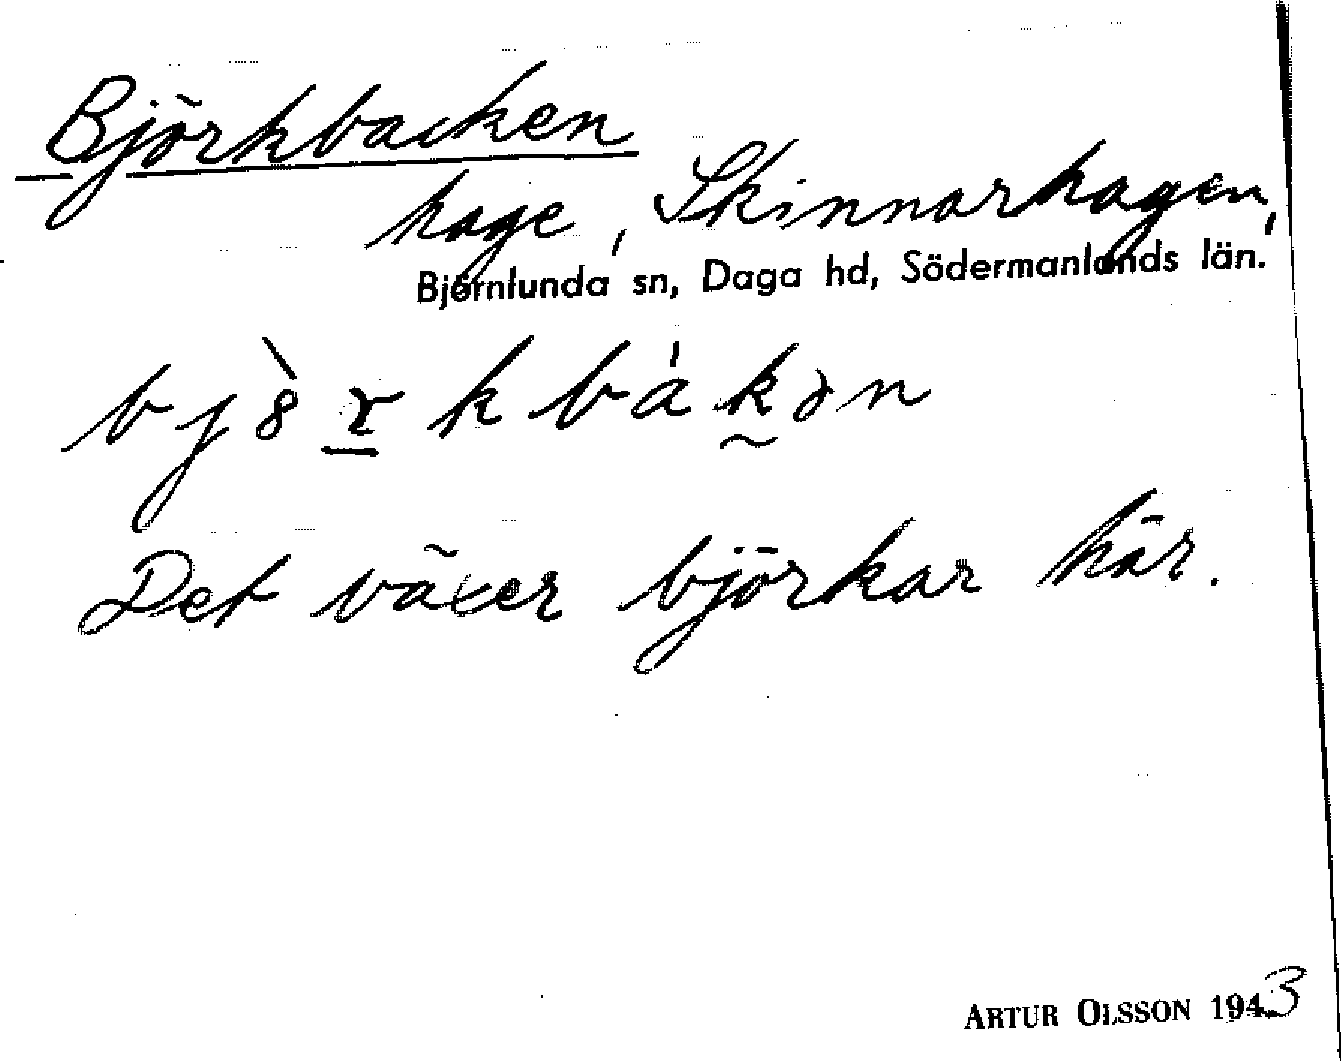 Björkbacken
hage, Skinnarhagen,
Björnlunda sn, Daga hd, Södermanlands län.
bjò̈rkbákən
Det växer björkar här.
ARTUR OLSSON 1943